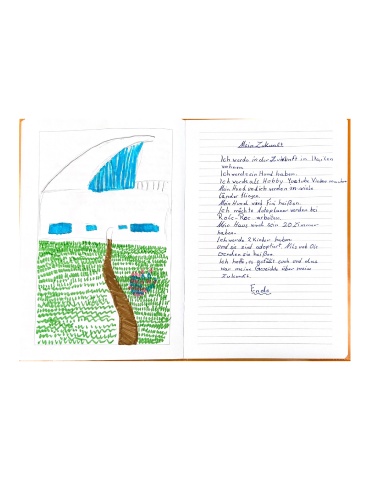 Mein Zukunft
Ich werde in der Zukunft in Italien
wohnen.
Ich werde ein Hund haben.
Ich werde als Hobby Youtube Videos machen
Mein Hund und ich werden in viele
Länder fliegen.
Mein Hund wird Fini heißen.
Ich möchte Autoplaner werden bei
Rols-Roc arbeiten.
Mein Haus wird von 20 Zimmer
haben.
Ich werde 2 Kinder haben
und sie sind adoptiert. Nils und
werden sie heißen.
Ich hoffe, es gefällt euch und
war meine Geschichte über meine
Zukunft.
Ende